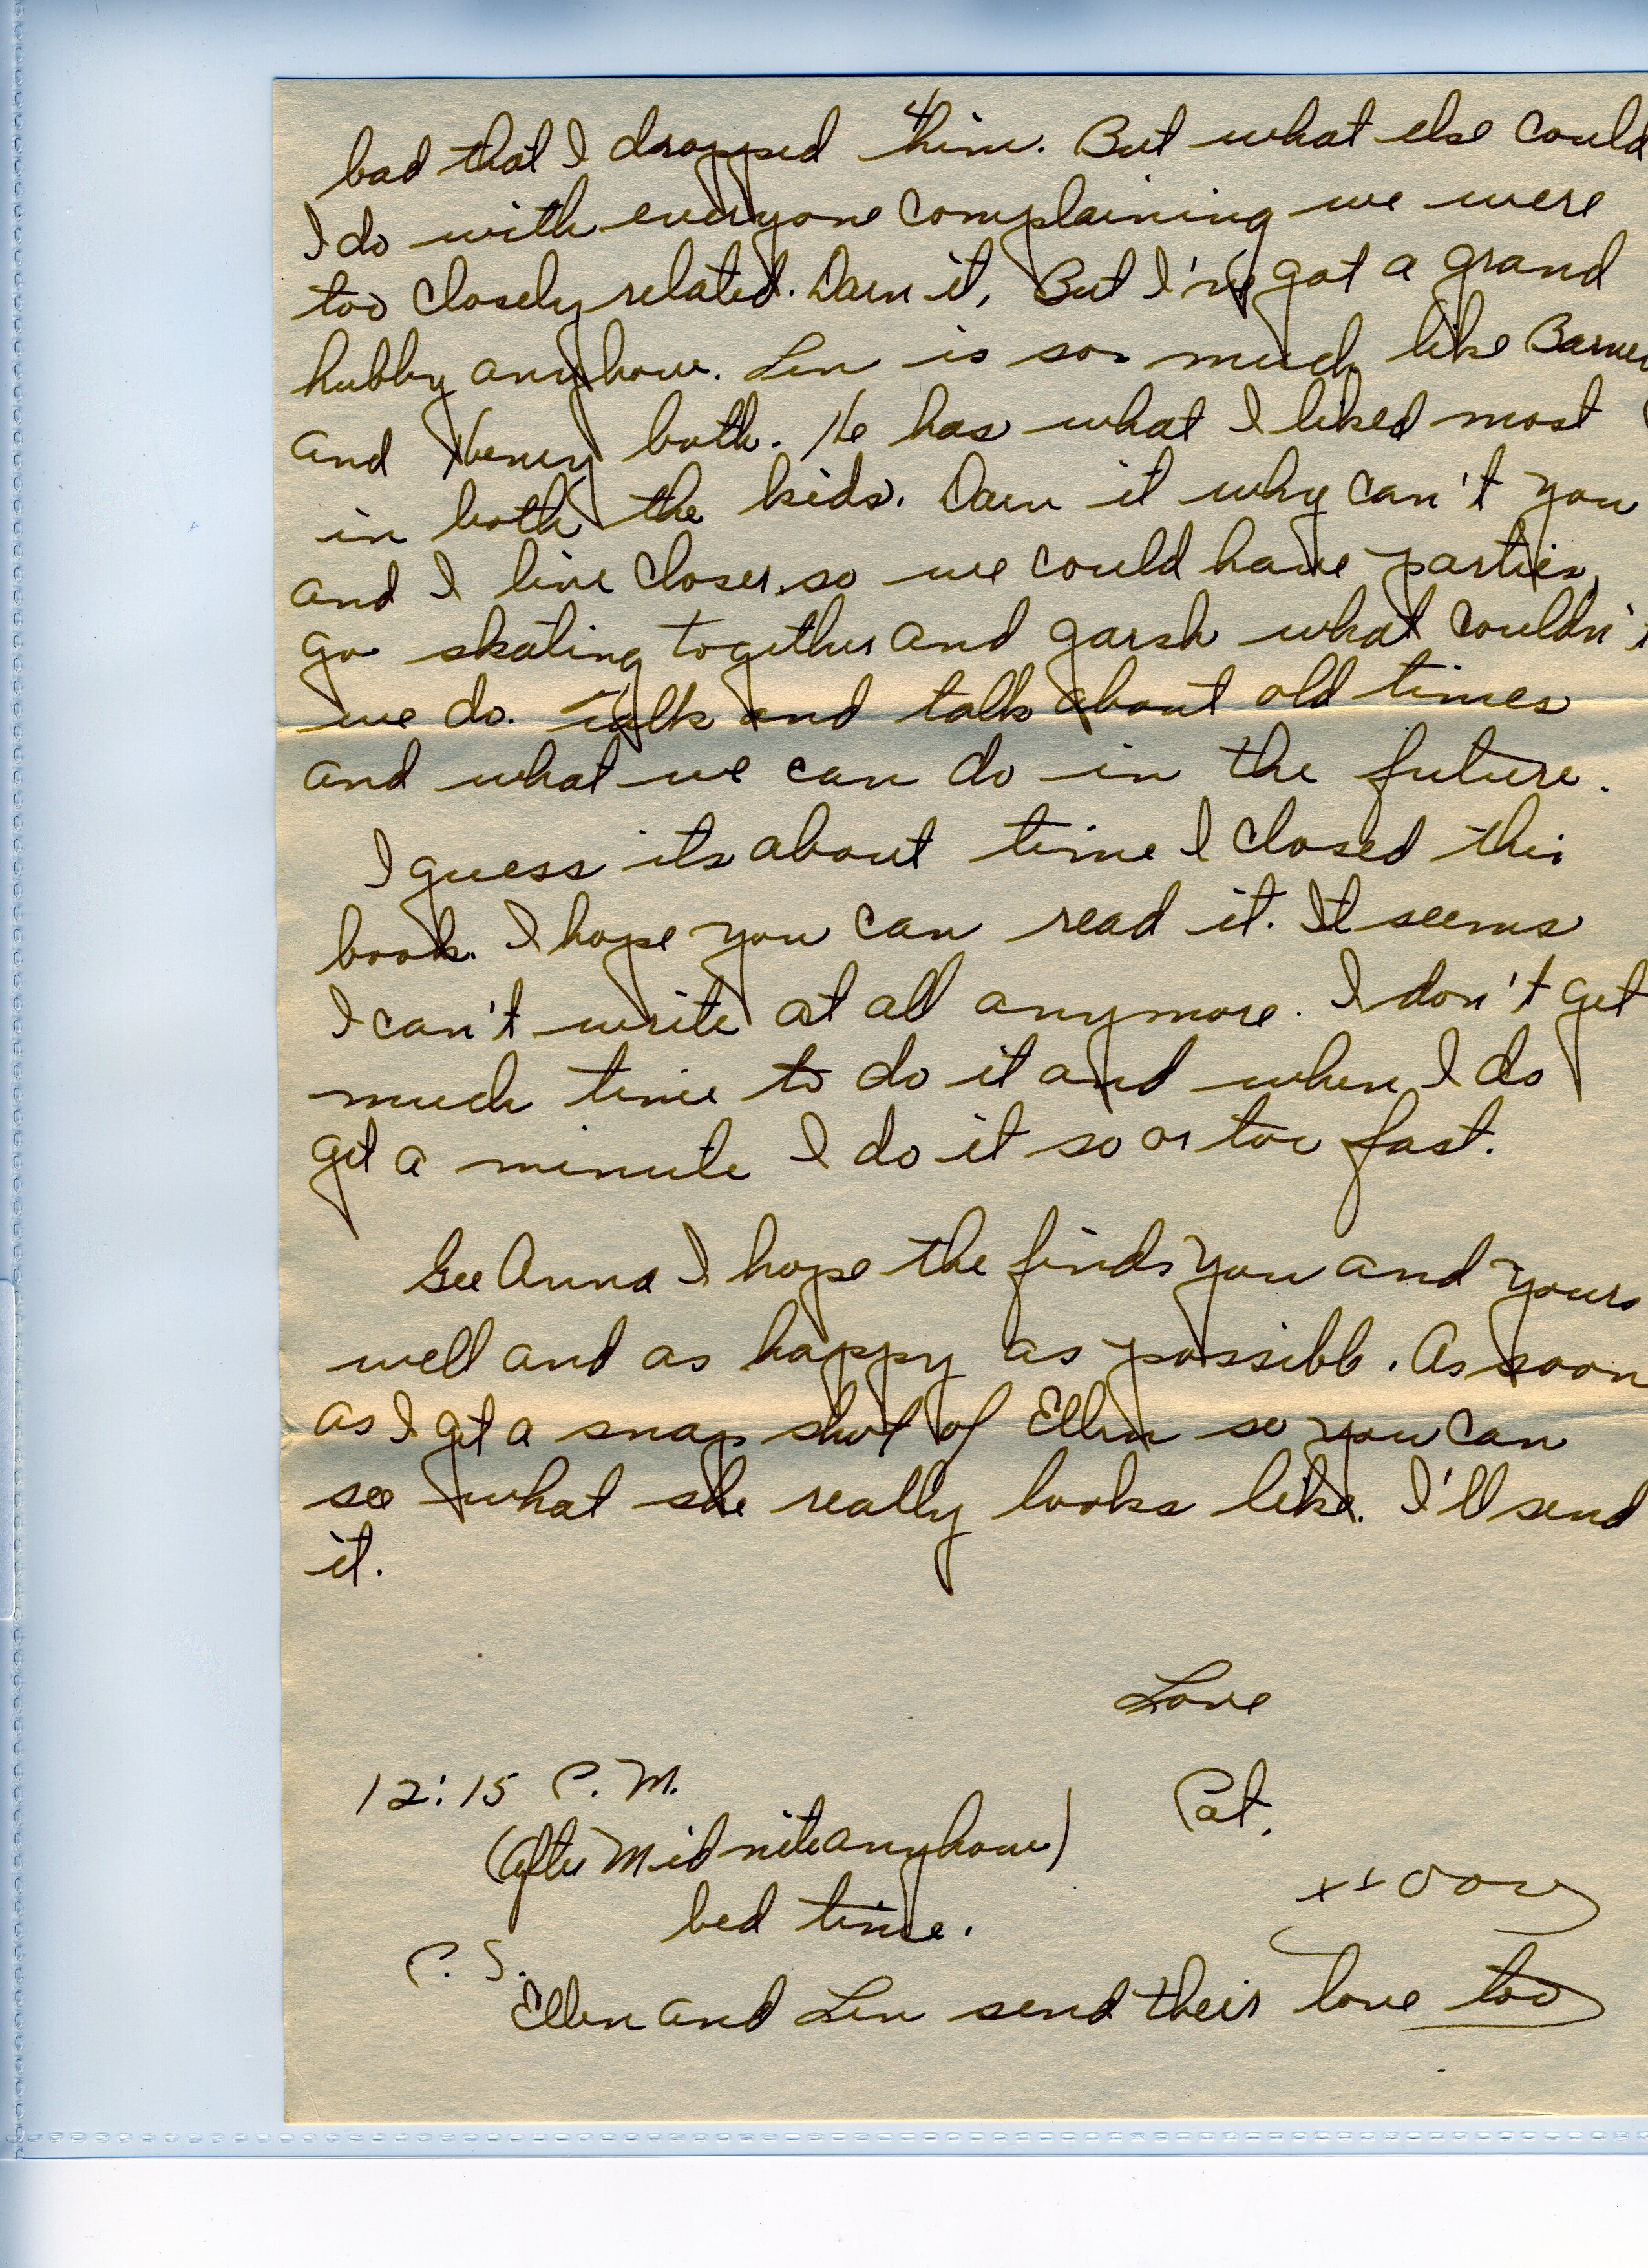 4
bad that I dropped him. But what else could
I do with everyone complaining we were
too closely related. Darn it, But I've got a grand
hubby anyhow. Len is so much like
and Henry both. He has what I liked most
in both the kids. Darn it why can't you
and I live closer so we could have parties,
go skating together and garsh what couldn't
we do. Talk and talk about old times
and what we can do in the future.
I guess its about time I closed this
book. I hope you can read it. It seems
I can't write at all anymore. I don't get
much time to do it and when I do
get a minute I do it so or too fast.
Gee Anna I hope the finds you and yours
well and as happy as possible. As soon
as I get a snap shot of Ellen so you can
see what she really looks like. I'll send
it.
Love
12:15 P.M.
Pat.
(after Mid nite anyhow)
bed time.
xx
P. S.
Ellen and Len send their love too